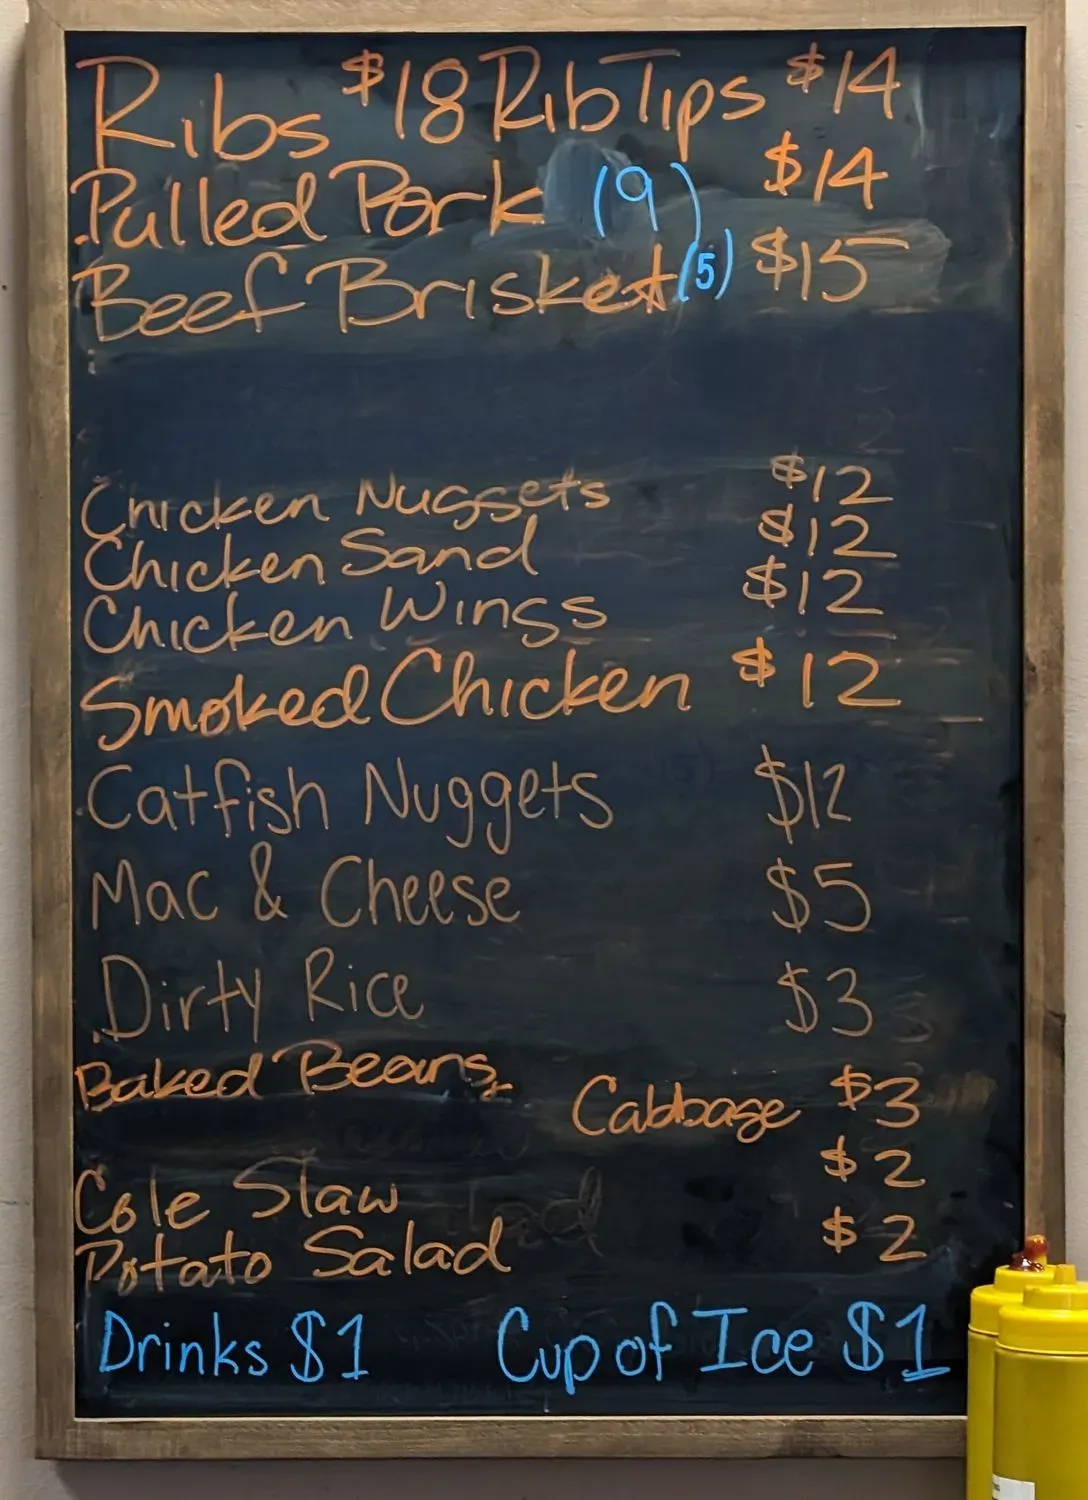 Ribs $18 Rib Tips $14
Pulled Pork (9) $14
Beef Brisket (5) $15
Chicken Nuggets $12
Chicken Sand $12
Chicken Wings $12
Smoked Chicken $12
Catfish Nuggets $12
Mac & Cheese $5
Dirty Rice $3
Baked Beans, Cabbage $3
Cole Slaw $2
Potato Salad $2
Drinks $1 Cup of Ice $1